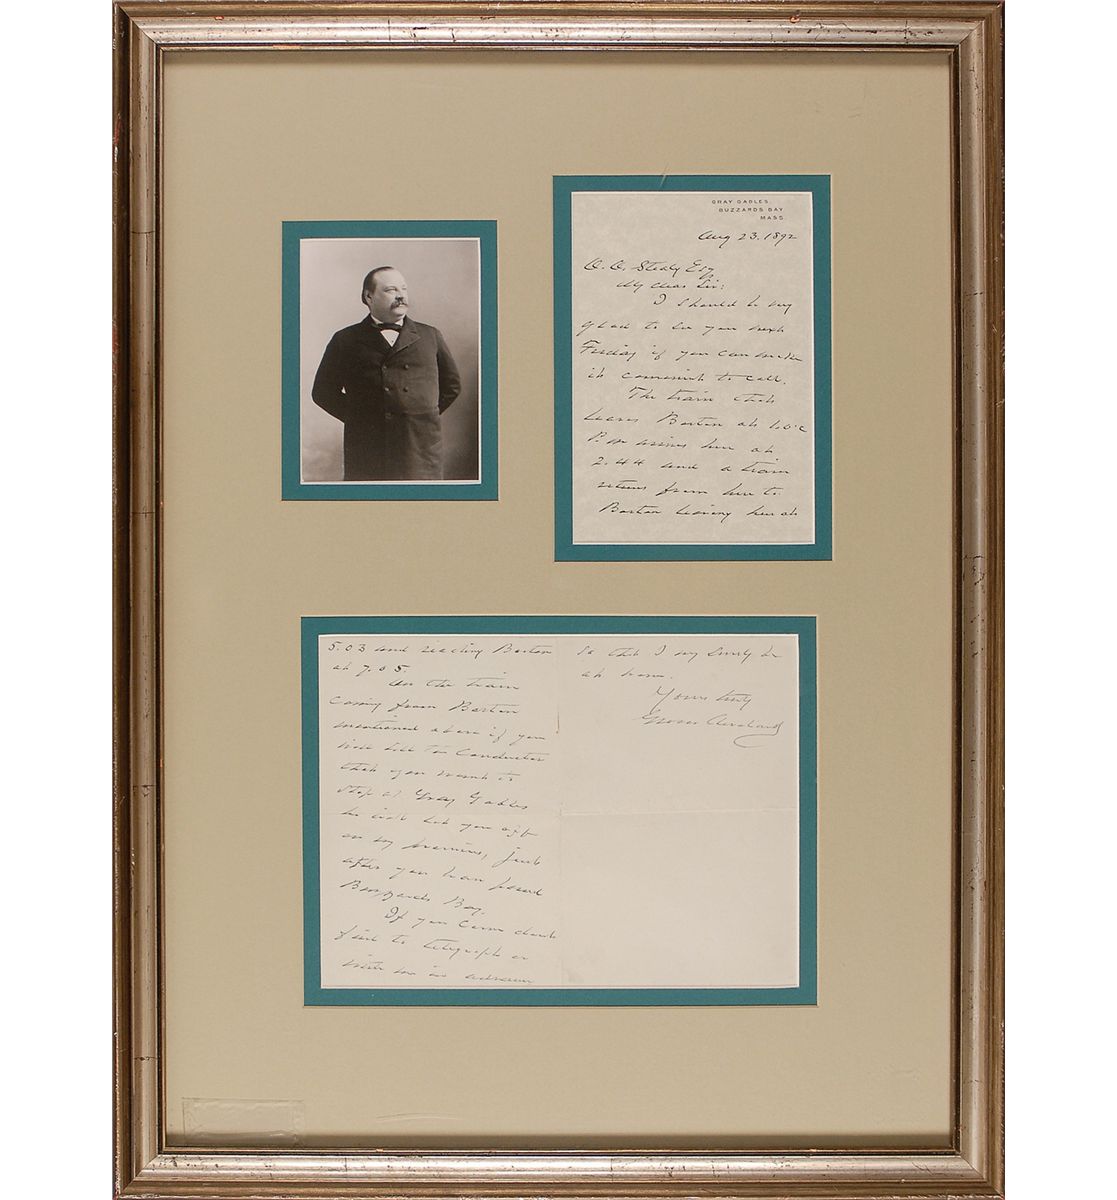 GRAY GABLES,
BUZZARDS BAY
MASS.
Aug 23. 1892
O. O. Stealy Esq
My dear Sir:
I should be very
glad to see you next
Friday if you can make
it convenient to call.
The train that
leaves Boston at 1.0.c
P.m arrives here at
2.44 and a train
returns from here to
Boston leaving here at
5.03 and reaching Boston
at 7.05.
On the train
coming from Boston
mentioned above if you
will tell the Conductor
that you want to
stop at Gray Gables
he will let you off
on my premises, just
after you have passed
Buzzards Bay.
If you come dont
fail to telegraph or
write me in advance
so that I may surely be
at home.
Yours truly
Grover Cleveland